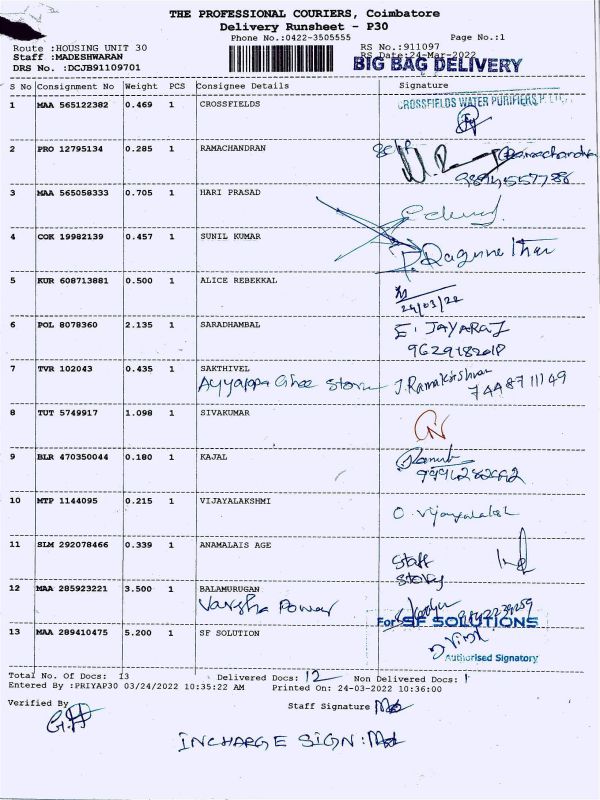 THE PROFESSIONAL COURIERS, Coimbatore
Delivery Runsheet - P30
Phone No.:0422-3505555 Page No.:1
Route :HOUSING UNIT 30 RS No.:911097
Staff :MADESHWARAN RS Date:24-Mar-2022
DRS No. :DCJB91109701 BIG BAG DELIVERY
S No Consignment No Weight PCS Consignee Details Signature
1 MAA 565122382 0.469 1 CROSSFIELDS CROSSFIELDS WATER PURIFIERS
2 PRO 12795134 0.285 1 RAMACHANDRAN self Ramachandran
3 MAA 565058333 0.705 1 HARI PRASAD
4 COK 19982139 0.457 1 SUNIL KUMAR
5 KUR 608713881 0.500 1 ALICE REBEKKAL
24/03/22
6 POL 8078360 2.135 1 SARADHAMBAL E. JAYARAJ
7 TVR 102043 0.435 1 SAKTHIVEL
Ayyappa Ghee Store J. Ramakrishnan
8 TUT 5749917 1.098 1 SIVAKUMAR
9 BLR 470350044 0.180 1 KAJAL
10 MTP 1144095 0.215 1 VIJAYALAKSHMI
11 SLM 292078466 0.339 1 ANAMALAIS AGE
Staff
12 MAA 285923221 3.500 1 BALAMURUGAN
Varsha Power
13 MAA 289410475 5.200 1 SF SOLUTION For SF SOLUTIONS
Authorised Signatory
Total No. Of Docs: 13 Delivered Docs: 12 Non Delivered Docs: 1
Entered By :PRIYAP30 03/24/2022 10:35:22 AM Printed On: 24-03-2022 10:36:00
Verified By Staff Signature
INCHARGE SIGN: